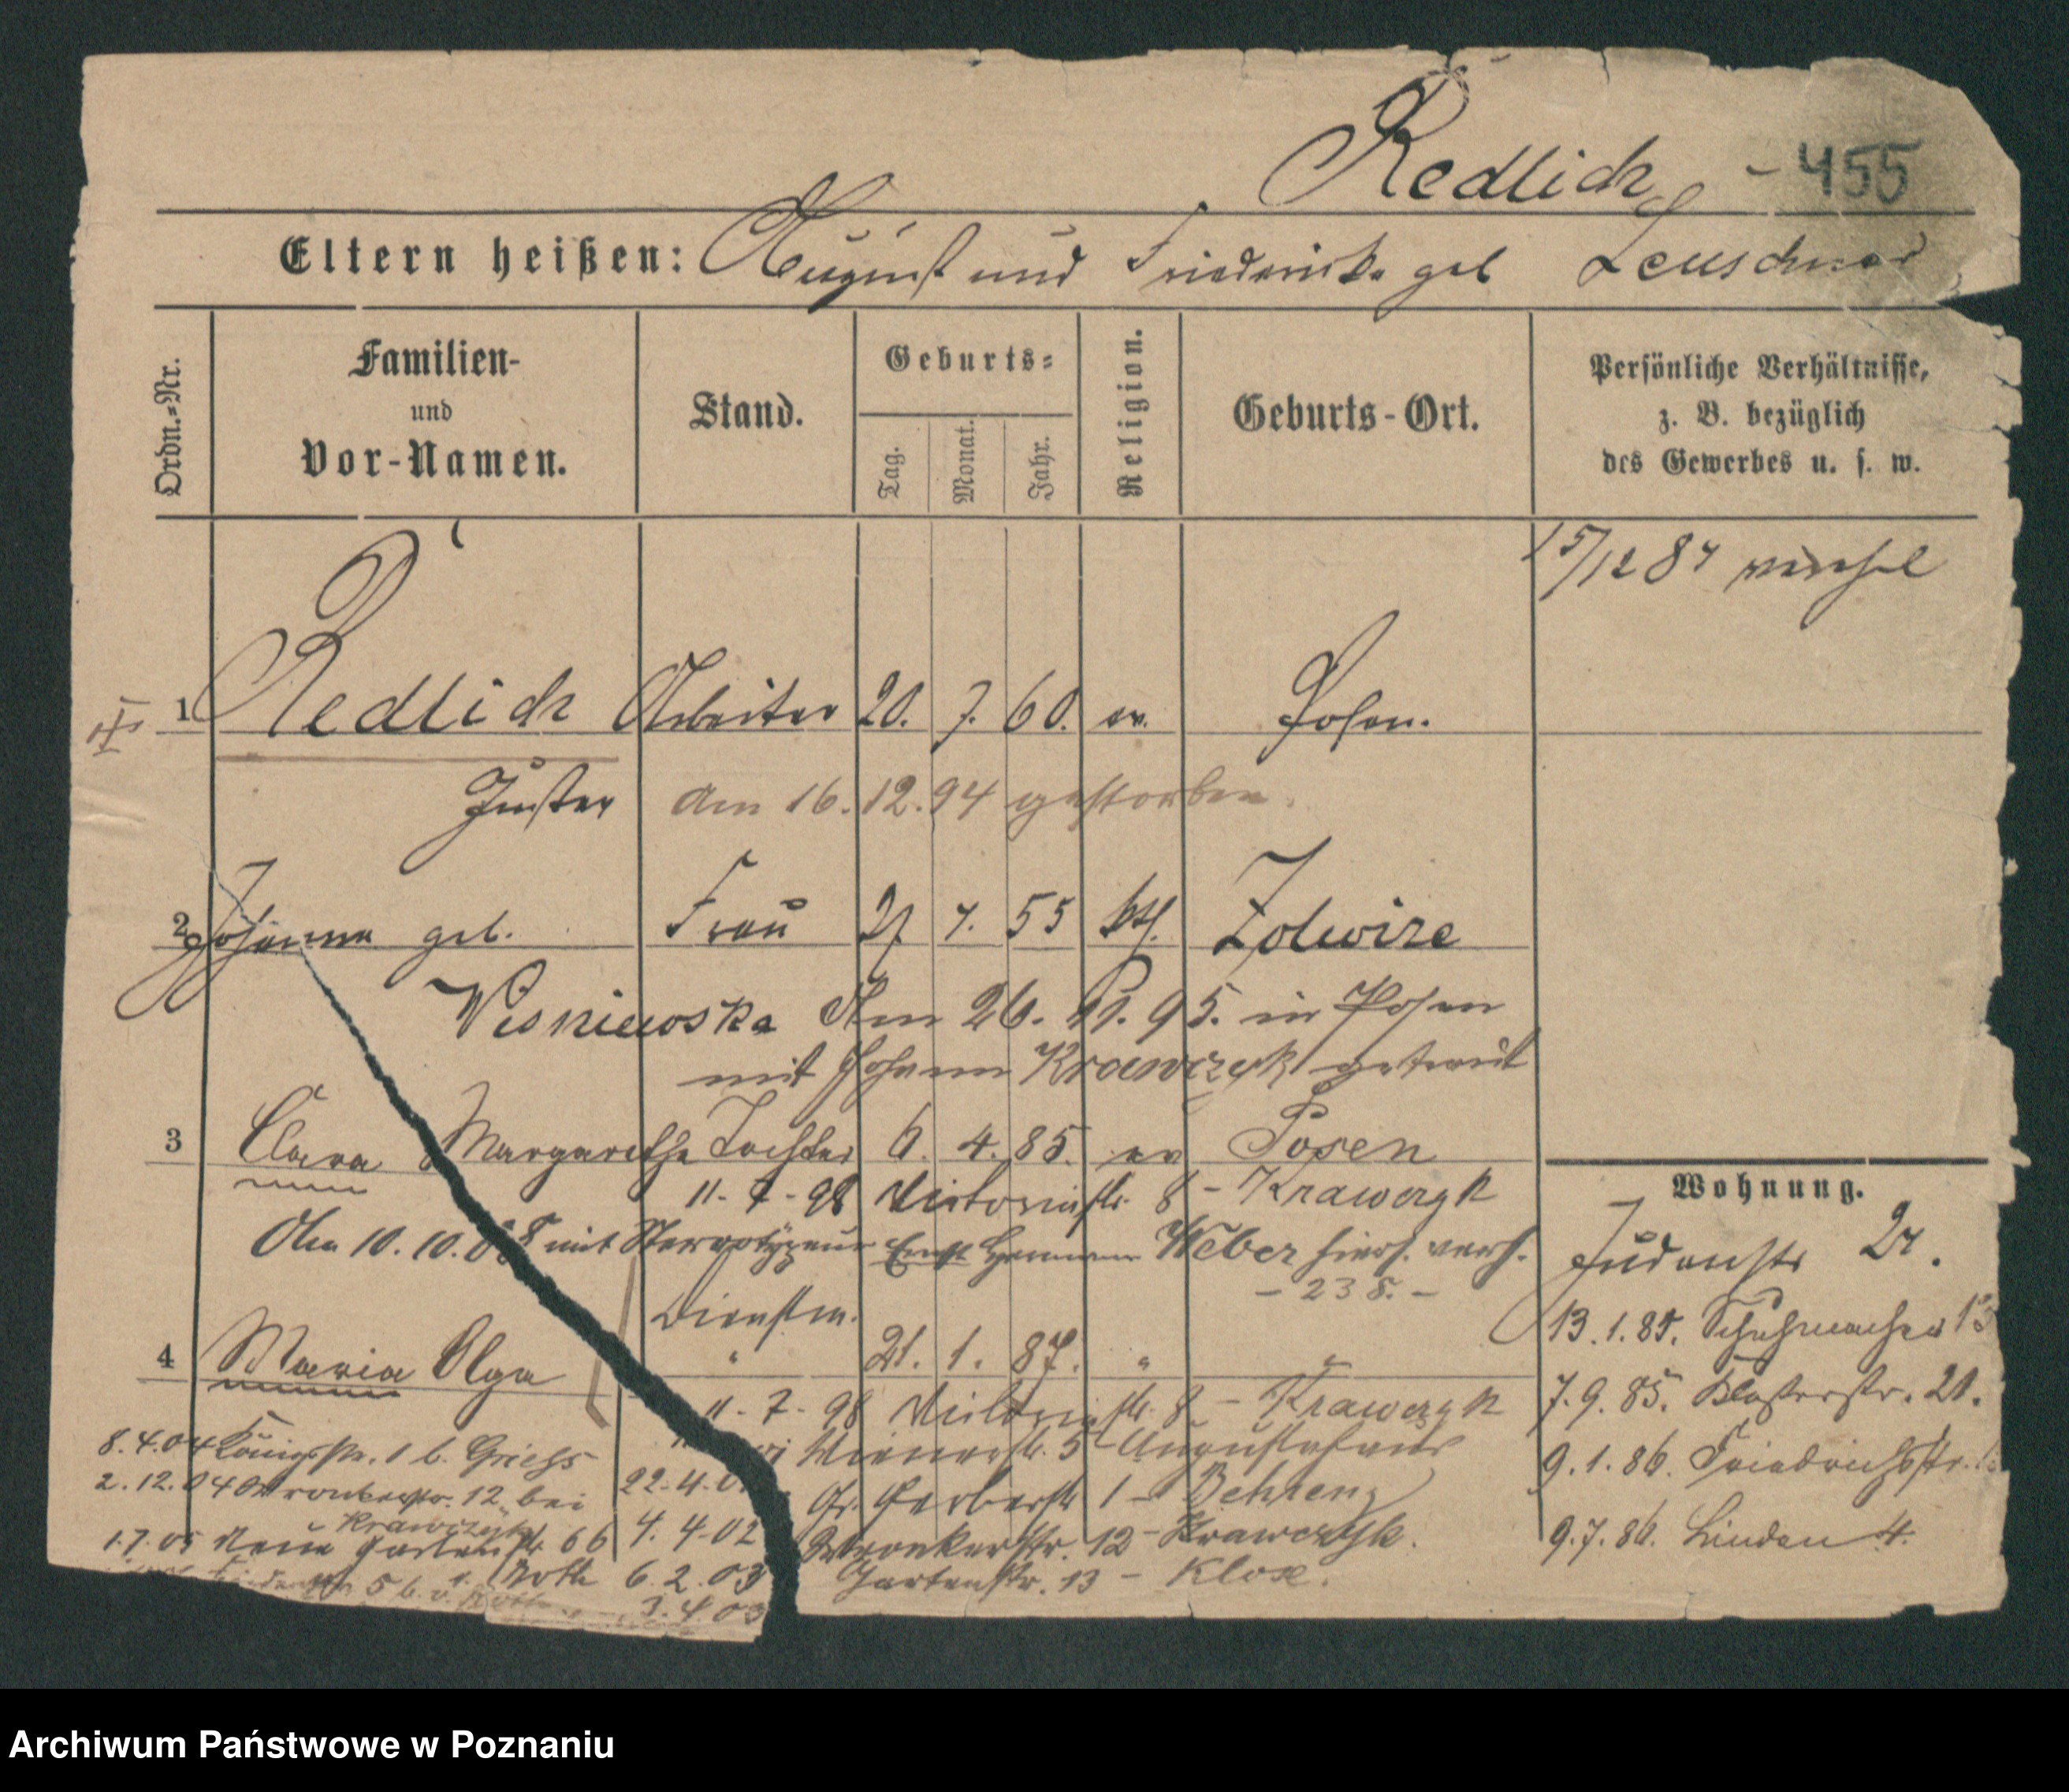 Redlich - 455
Eltern heißen: August und Friederike geb Leuschner
Ordn.-Nr.
Familien-
und
Vor-Namen.
Stand.
Geburts-
Tag.
Monat.
Jahr.
Religion.
Geburts-Ort.
Persönliche Verhältnisse,
z. B. bezüglich
des Gewerbes u. s. w.
15/12 84
1 Redlich Arbeiter 20. 7. 60. ev. Posen.
am 16. 12. 94 gestorben.
2 Johanna geb. Frau 27 4. 55 kth. Zolwire
Wisniewska Am 26. 11. 95. in Posen
mit Johann Krawczyk getraut
3 Clara Margarethe Tochter 6. 4. 85. ev Posen
11-7-98 Victoriastr. 8 - Krawczyk
Am 10. 10. mit Stereotypeur Ernst Hermann Weber hiers. verh.
- 238. -
Dienstm.
4 Maria Olga " 21. 1. 87. " "
11-7-98 Victoriastr. 8 - Krawczyk
Wienerstr. 5 - Augustahaus
22-4-0 Gr. Gerberstr 1 - Behrens
4. 4-02 Wronkerstr. 12 - Krawczyk.
6. 2. 03 Gartenstr. 13 - Klose.
3. 4 03
8. 4. 04 Königstr. 1 b. Griehs
2. 12. 04 Wronkerstr. 12 bei
Krawczyk
1. 7. 05 Neue Gartenstr 66
5 b. Roth
Wohnung.
Judenstr 27.
13. 1. 85. Schuhmacher 13
7. 9. 85. Klosterstr. 21.
9. 1. 86. Friedrichsstr.
9. 7. 86. Linden 4.
Archiwum Państwowe w Poznaniu